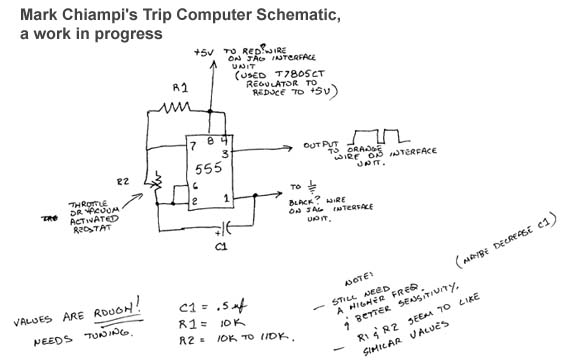 Mark Chiampi's Trip Computer Schematic,
a work in progress
+5V TO RED? WIRE
ON JAG INTERFACE
UNIT
(USED T7805CT
REGULATOR TO
REDUCE TO +5V)
R1
7 8 4
3
555
6
2 1
OUTPUT
TO ORANGE
WIRE ON INTERFACE
UNIT.
R2
THROTTLE
OR VACUUM
ACTIVATED
REOSTAT
TO
BLACK? WIRE
ON JAG INTERFACE
UNIT.
+
C1
VALUES ARE ROUGH!
NEEDS TUNING.
C1 = .5uf
R1 = 10K
R2 = 10K TO 110K.
NOTE:
– STILL NEED
A HIGHER FREQ.
& BETTER SENSITIVITY.
(MAYBE DECREASE C1)
– R1 & R2 SEEM TO LIKE
SIMILAR VALUES